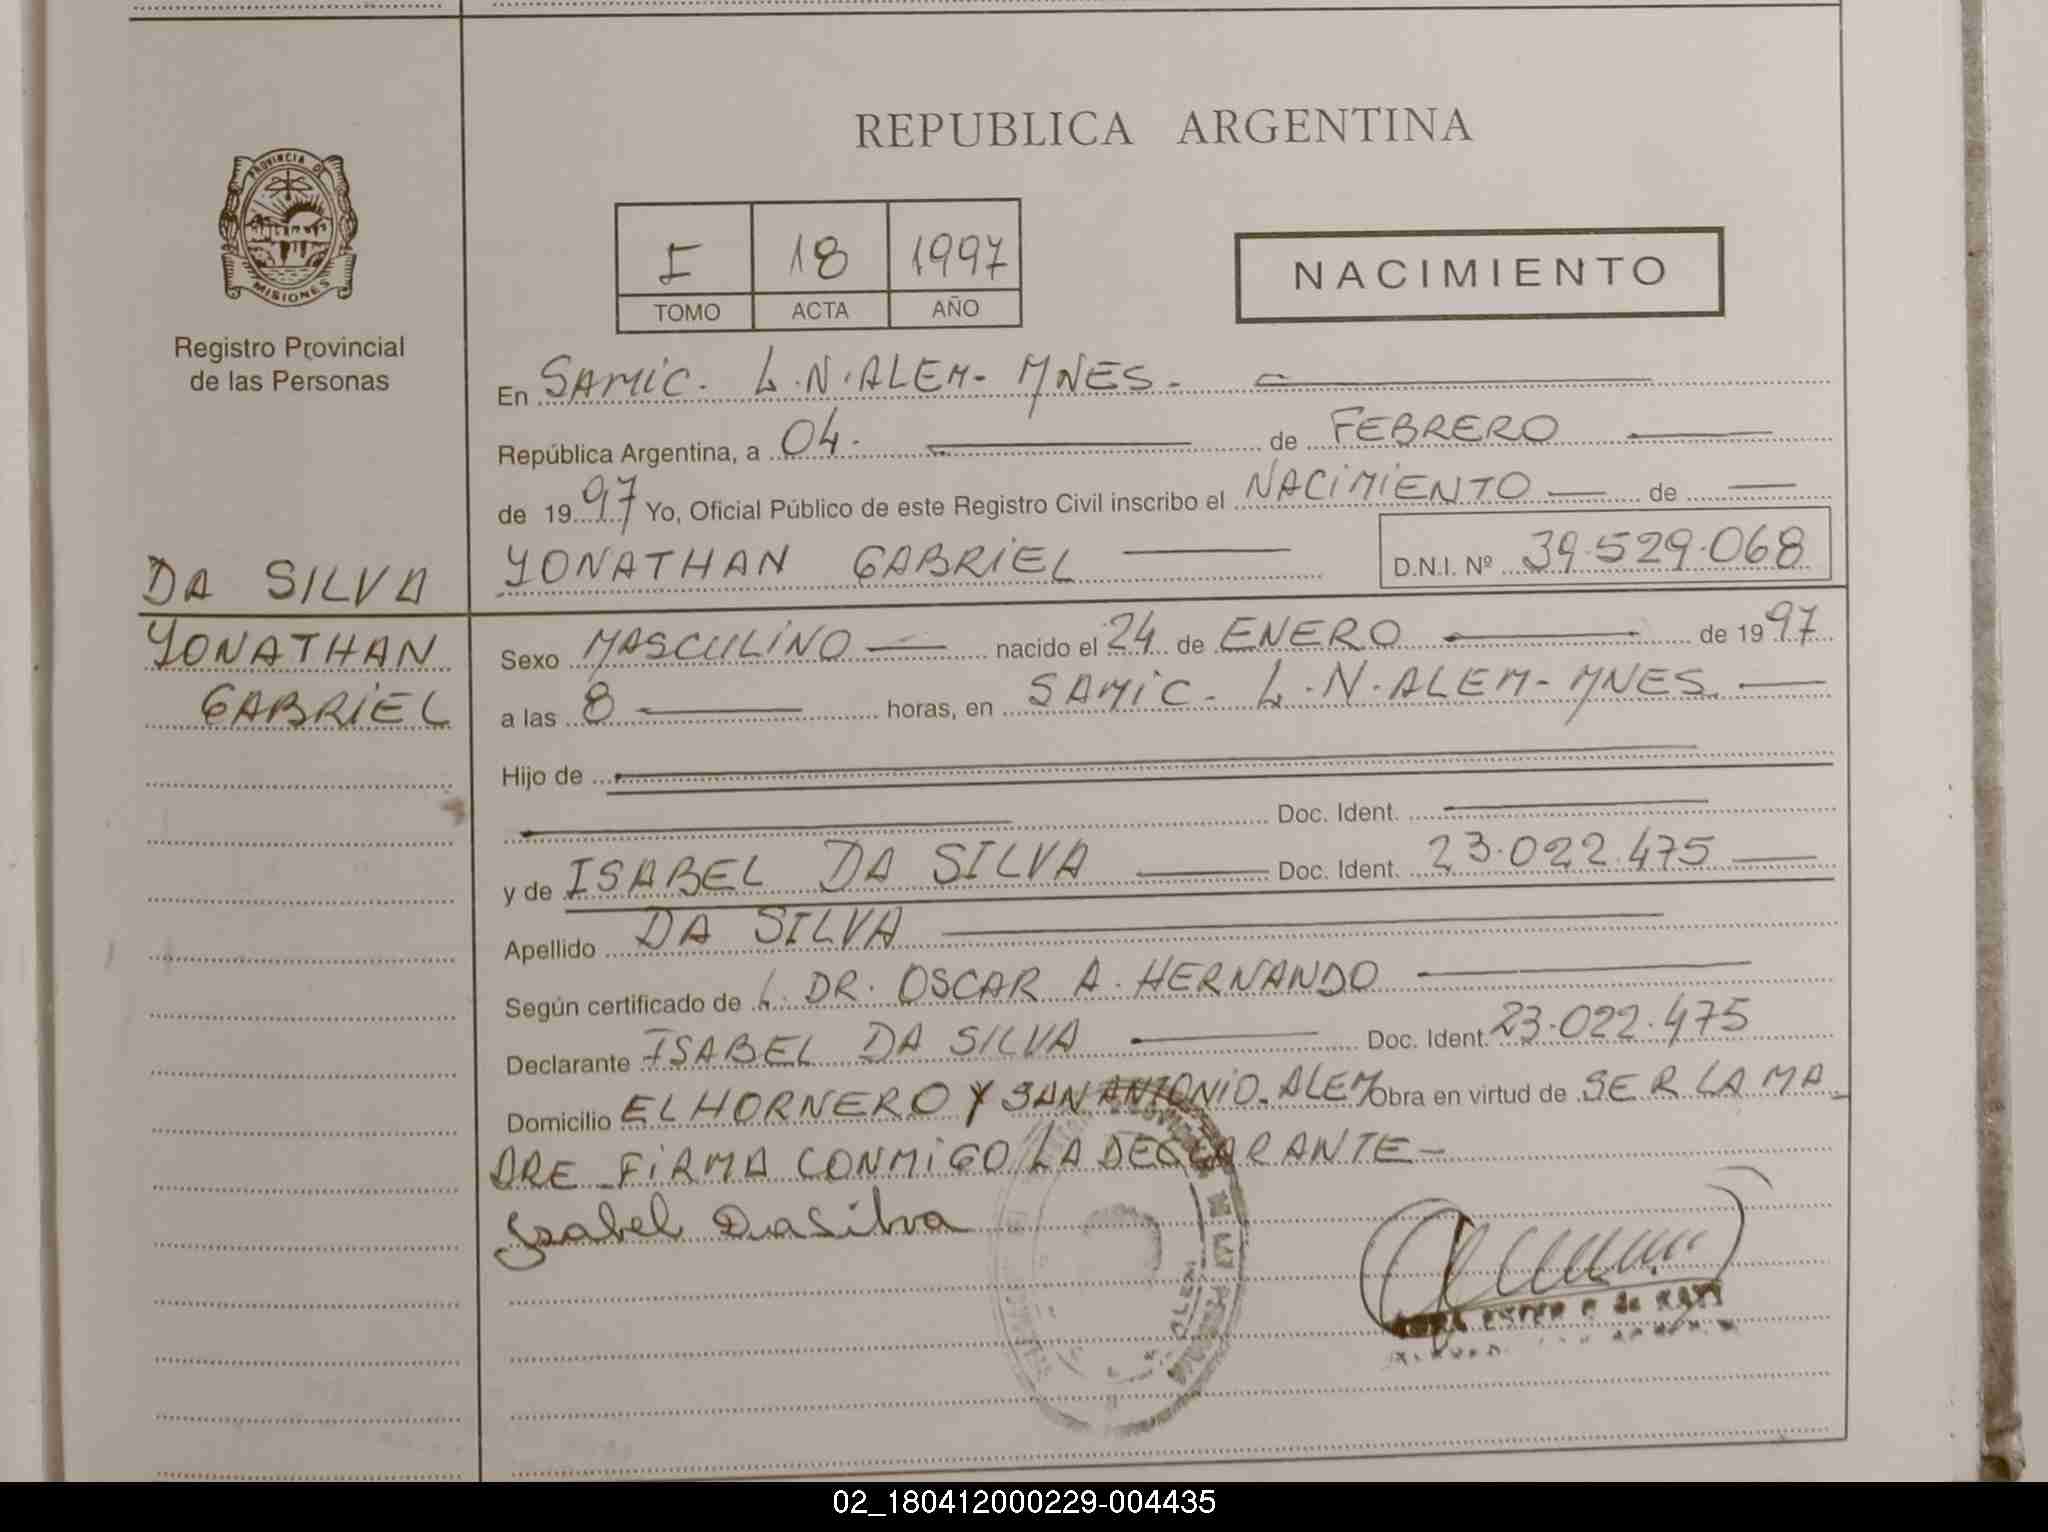 REPUBLICA ARGENTINA
PROVINCIA DE
MISIONES
Registro Provincial
de las Personas
I 18 1997
TOMO ACTA AÑO
NACIMIENTO
En SAMIC. L.N.ALEM- MNES-
República Argentina, a 04. de FEBRERO
de 1997 Yo, Oficial Público de este Registro Civil inscribo el NACIMIENTO de
YONATHAN GABRIEL D.N.I. Nº 39.529.068
DA SILVA
YONATHAN
GABRIEL
Sexo MASCULINO nacido el 24 de ENERO de 1997
a las 8 horas, en SAMIC- L.N.ALEM-MNES.
Hijo de
Doc. Ident.
y de ISABEL DA SILVA Doc. Ident. 23.022.475
Apellido DA SILVA
Según certificado de DR. OSCAR A. HERNANDO
Declarante ISABEL DA SILVA Doc. Ident. 23.022.475
Domicilio EL HORNERO Y SAN ANTONIO-ALEM Obra en virtud de SER LA MA_
DRE_FIRMA CONMIGO LA DECLARANTE-
Isabel Da Silva
ALEM
02_180412000229-004435